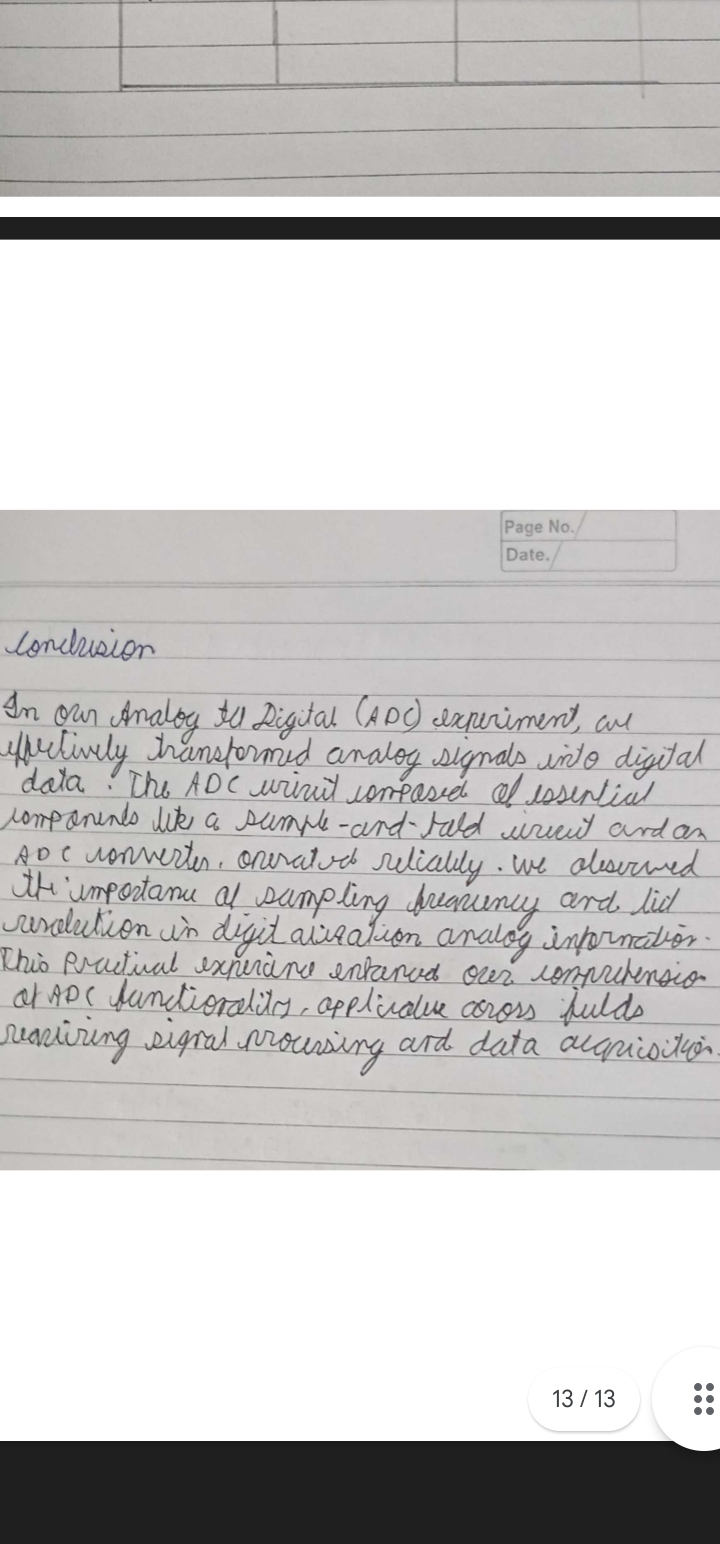 Page No.
Date.
Conclusion
In our Analog to Digital (ADC) experiment, we
effectively transformed analog signals into digital
data. The ADC circuit composed of essential
components like a sample-and-hold circuit and an
ADC converter, operated reliably. We observed
the importance of sampling frequency and bit
resolution in digitalization analog information.
This Practical experience enhanced our comprehension
of ADC functionality, applicable across fields
requiring signal processing and data acquisition.
13 / 13